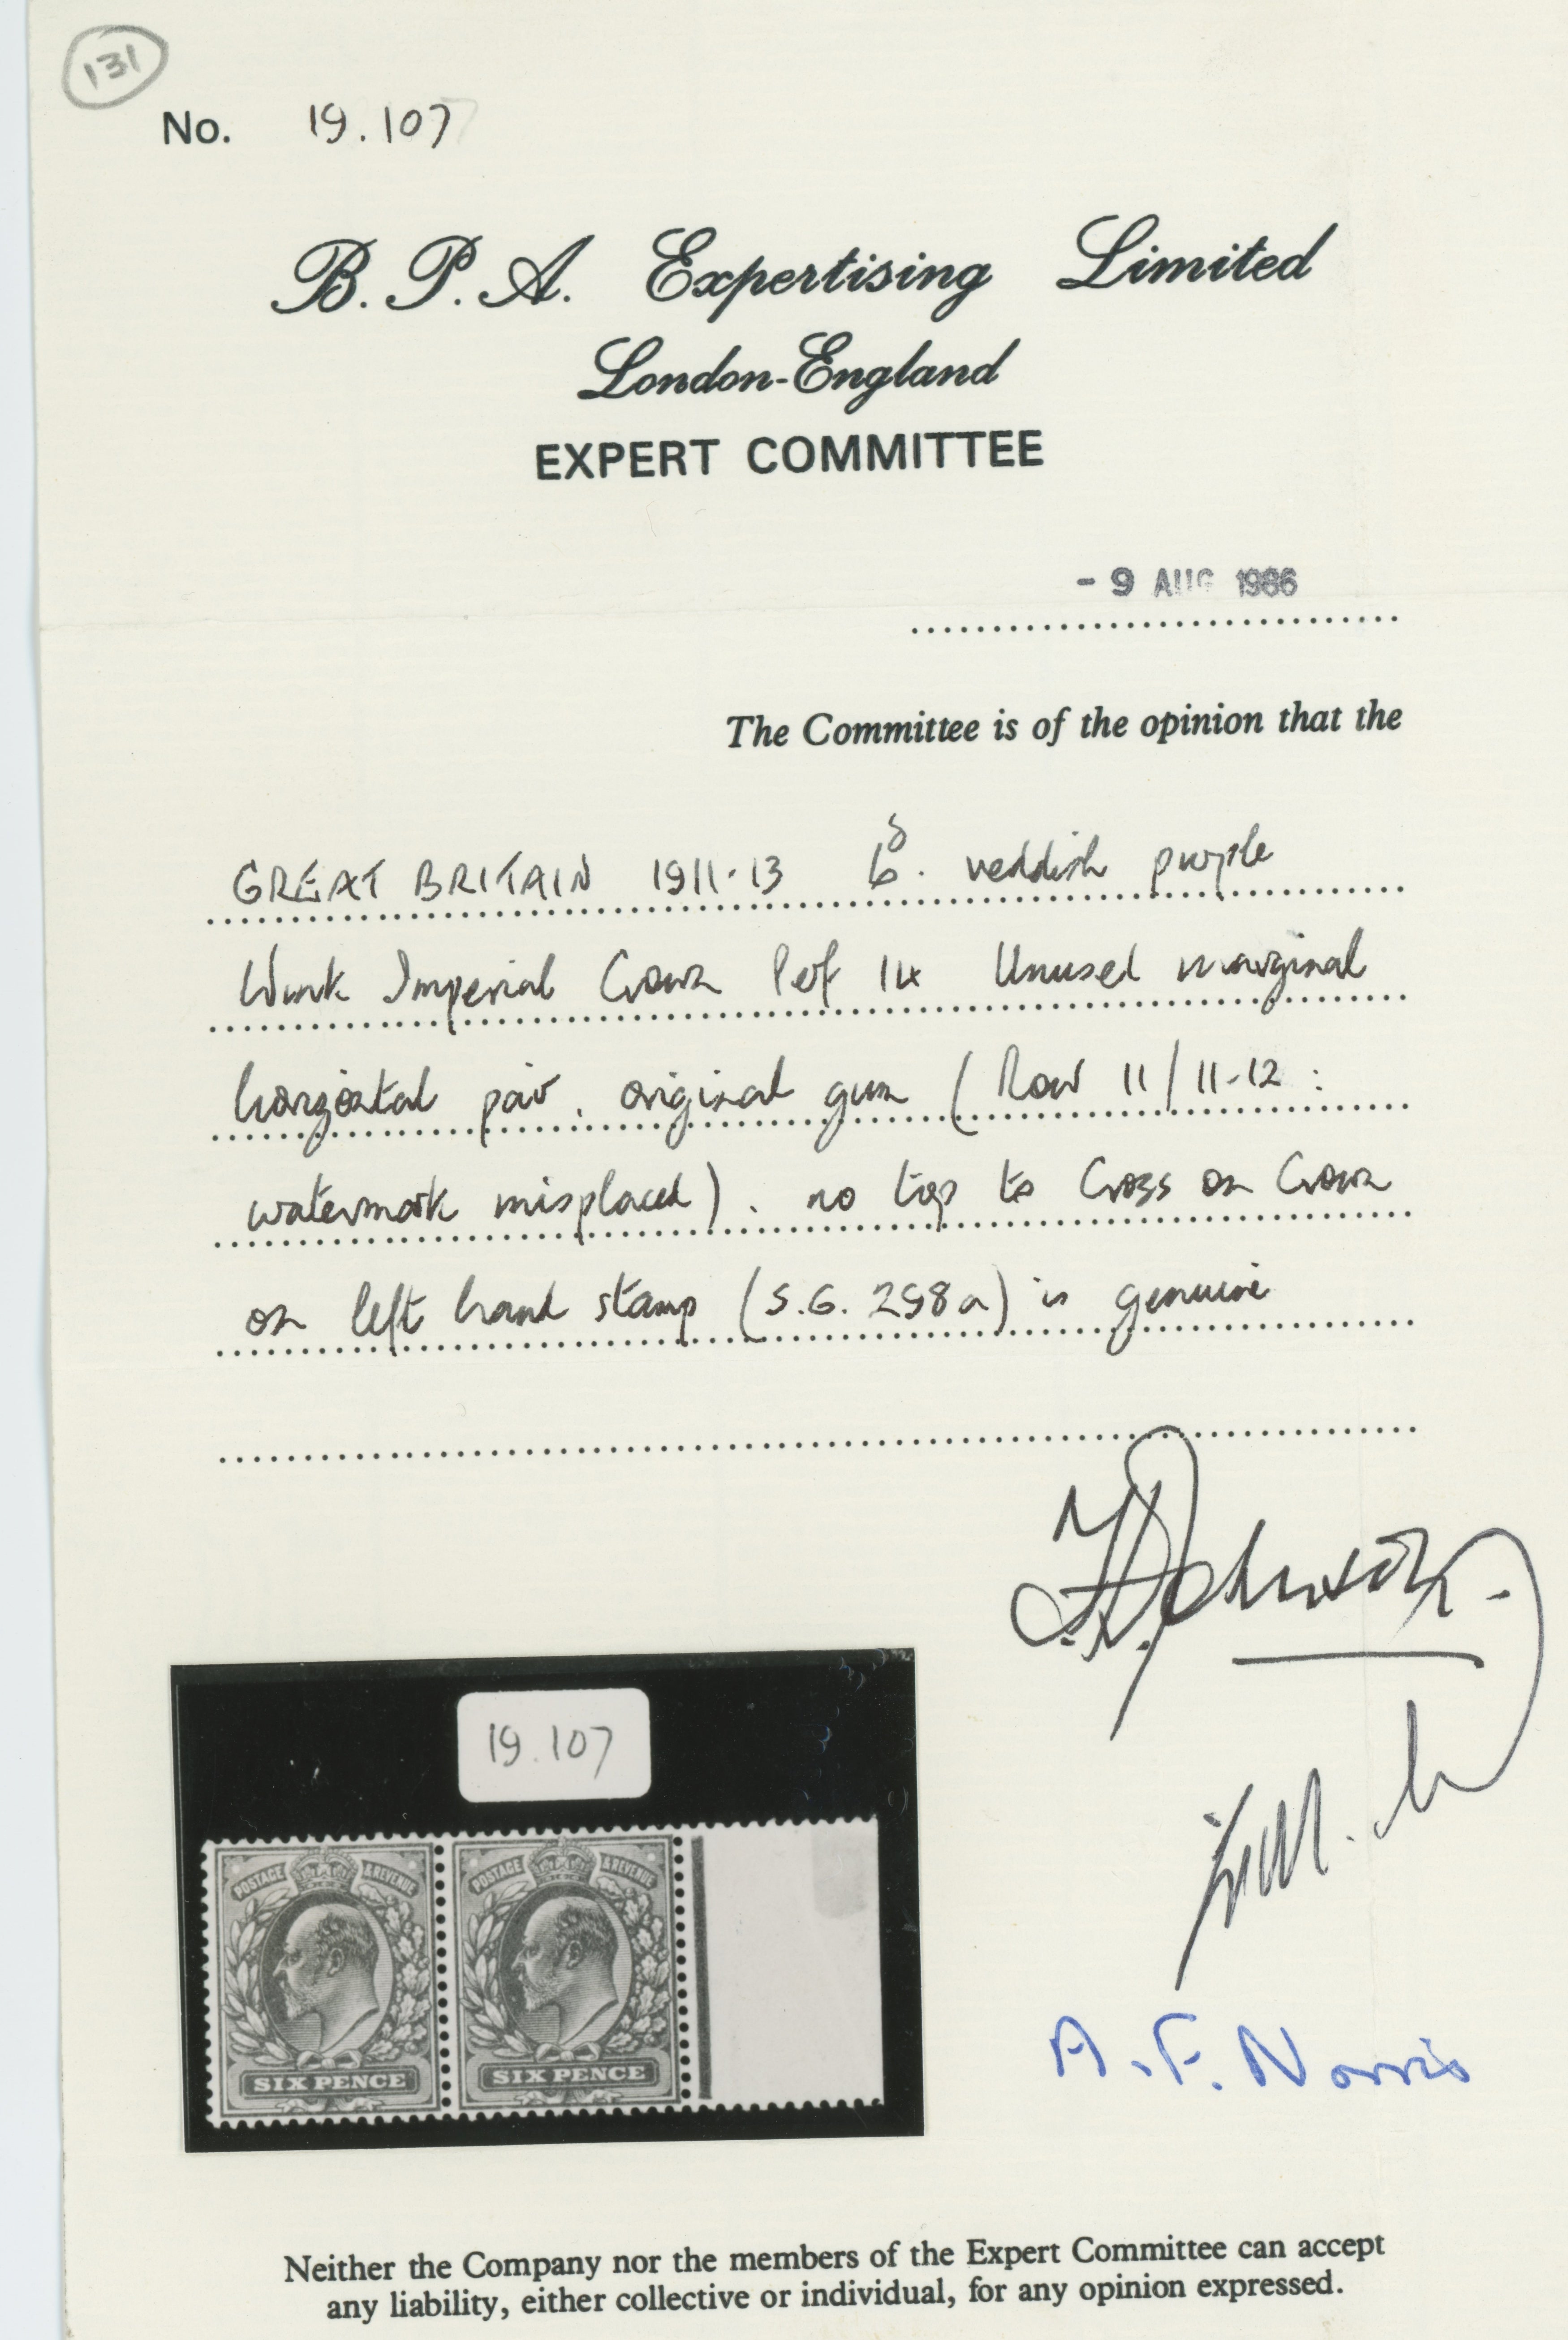 131
No. 19.107
B. P. A. Expertising Limited
London-England
EXPERT COMMITTEE
- 9 AUG 1986
The Committee is of the opinion that the
GREAT BRITAIN 1911-13 6d. reddish purple
Wmk Imperial Crown Perf 14 Unused marginal
horizontal pair, original gum (Row 11/11-12:
watermark misplaced). no top to Cross on Crown
on left hand stamp (S.G. 298a) is genuine
19.107
POSTAGE & REVENUE POSTAGE & REVENUE
SIX PENCE SIX PENCE
A. F. Norris
Neither the Company nor the members of the Expert Committee can accept
any liability, either collective or individual, for any opinion expressed.